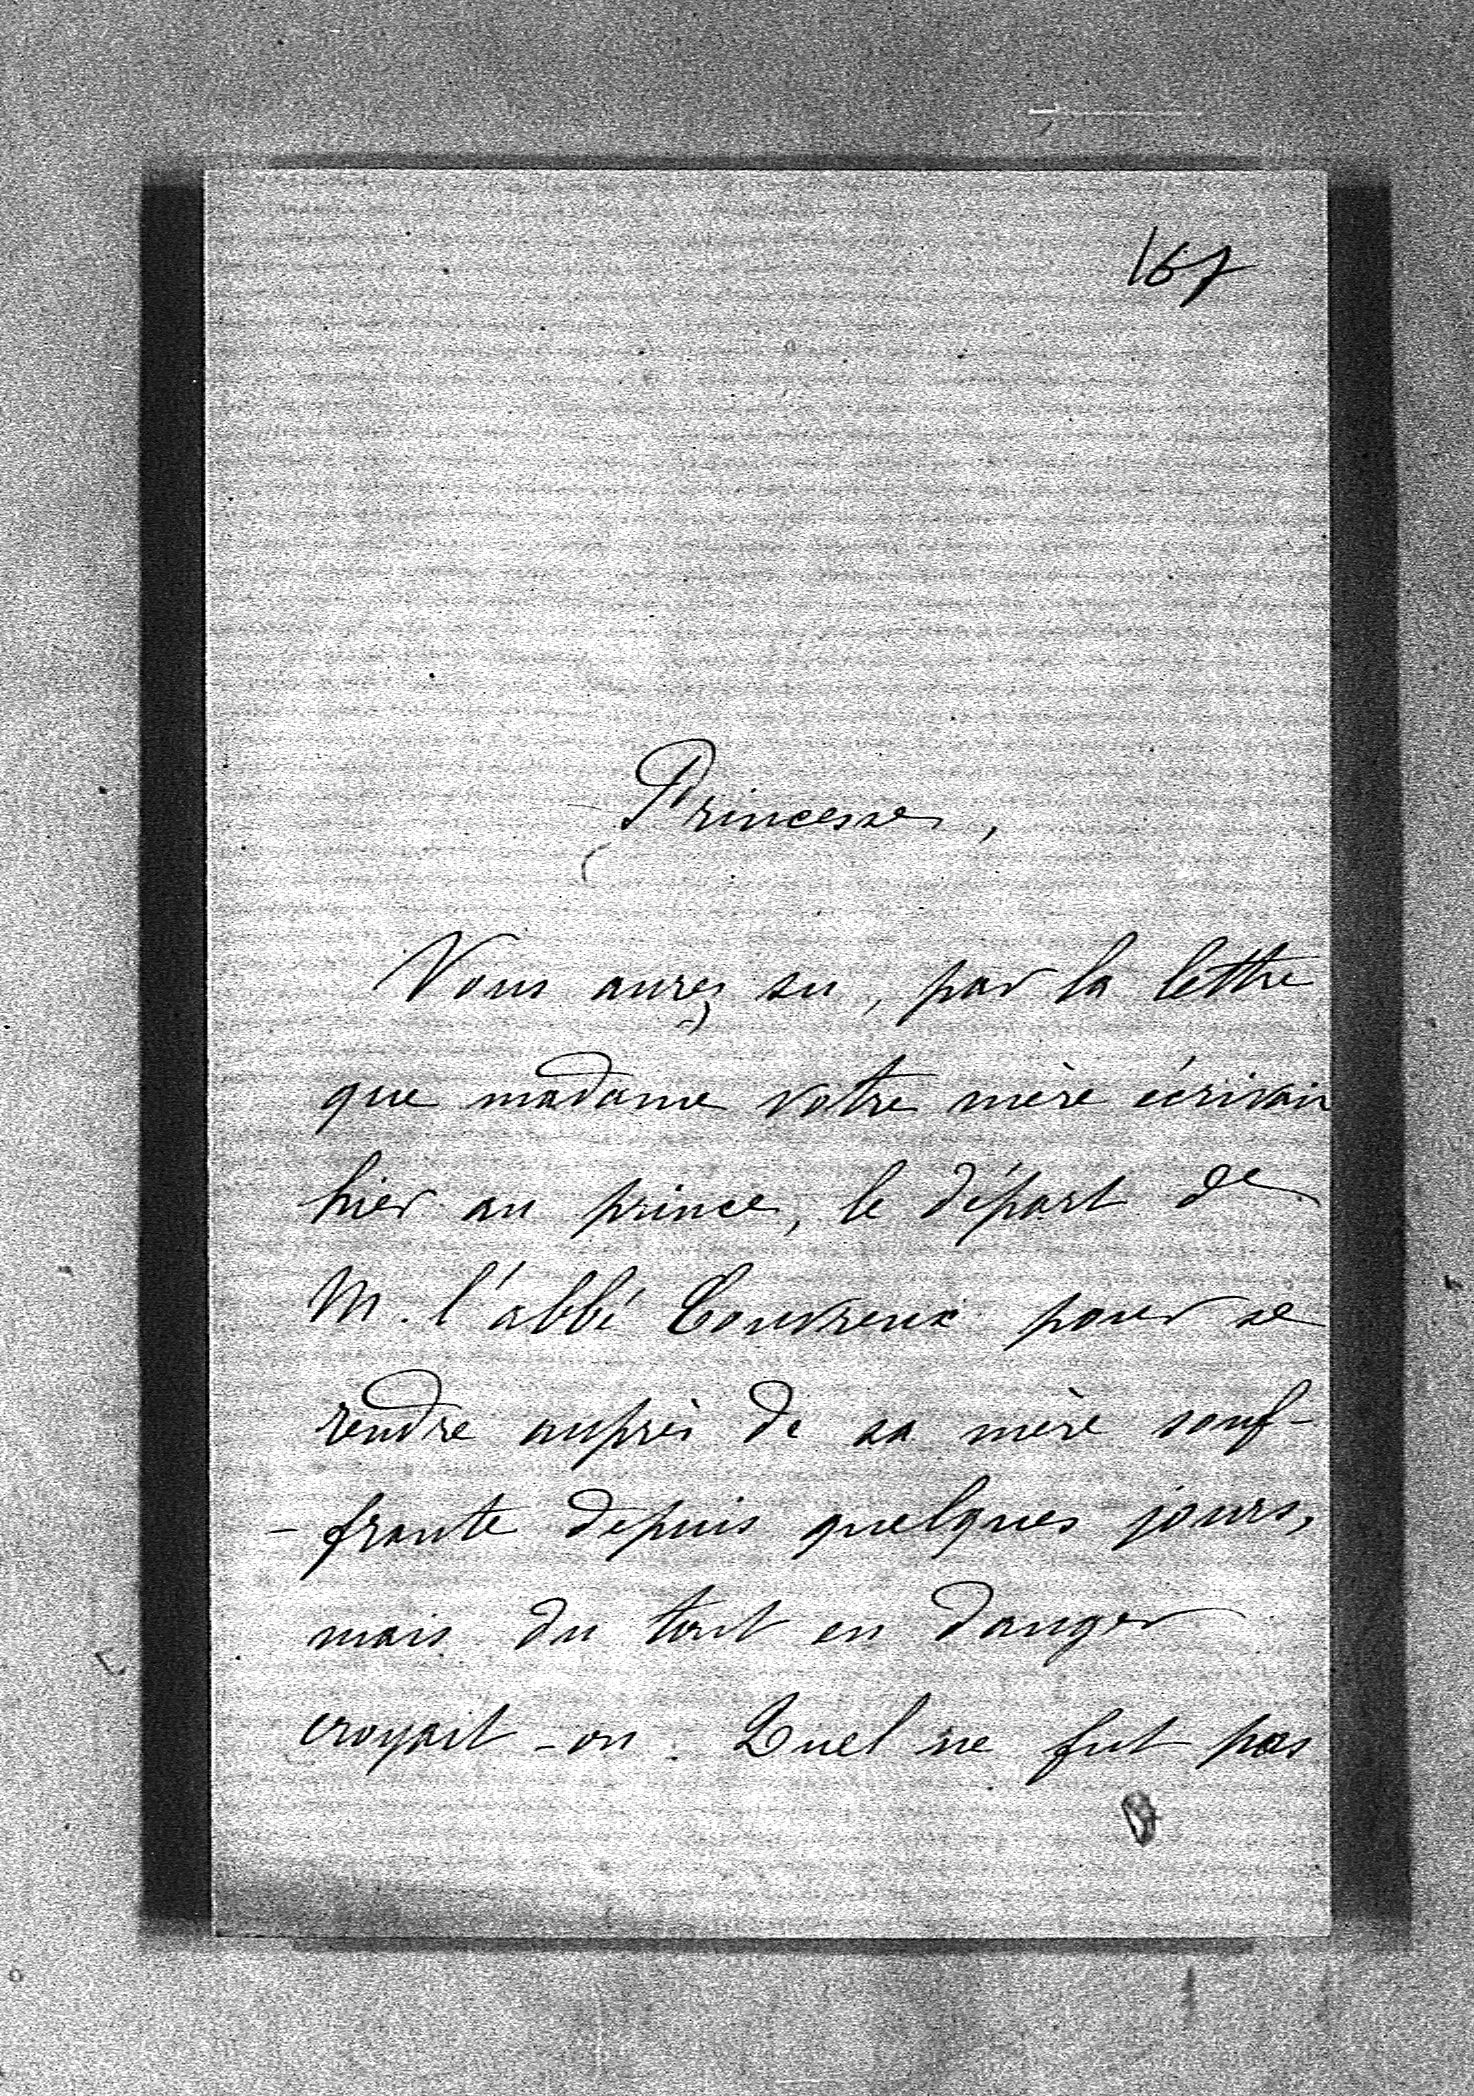 167
Princesse,
Vous aurez su, par la lettre
que madame votre mère écrivait
hier au prince, le départ de
M. l'abbé Couvreux pour se
rendre auprès de sa mère souf-
-frante depuis quelques jours,
mais du tout en danger
croyait-on. Quel ne fut pas